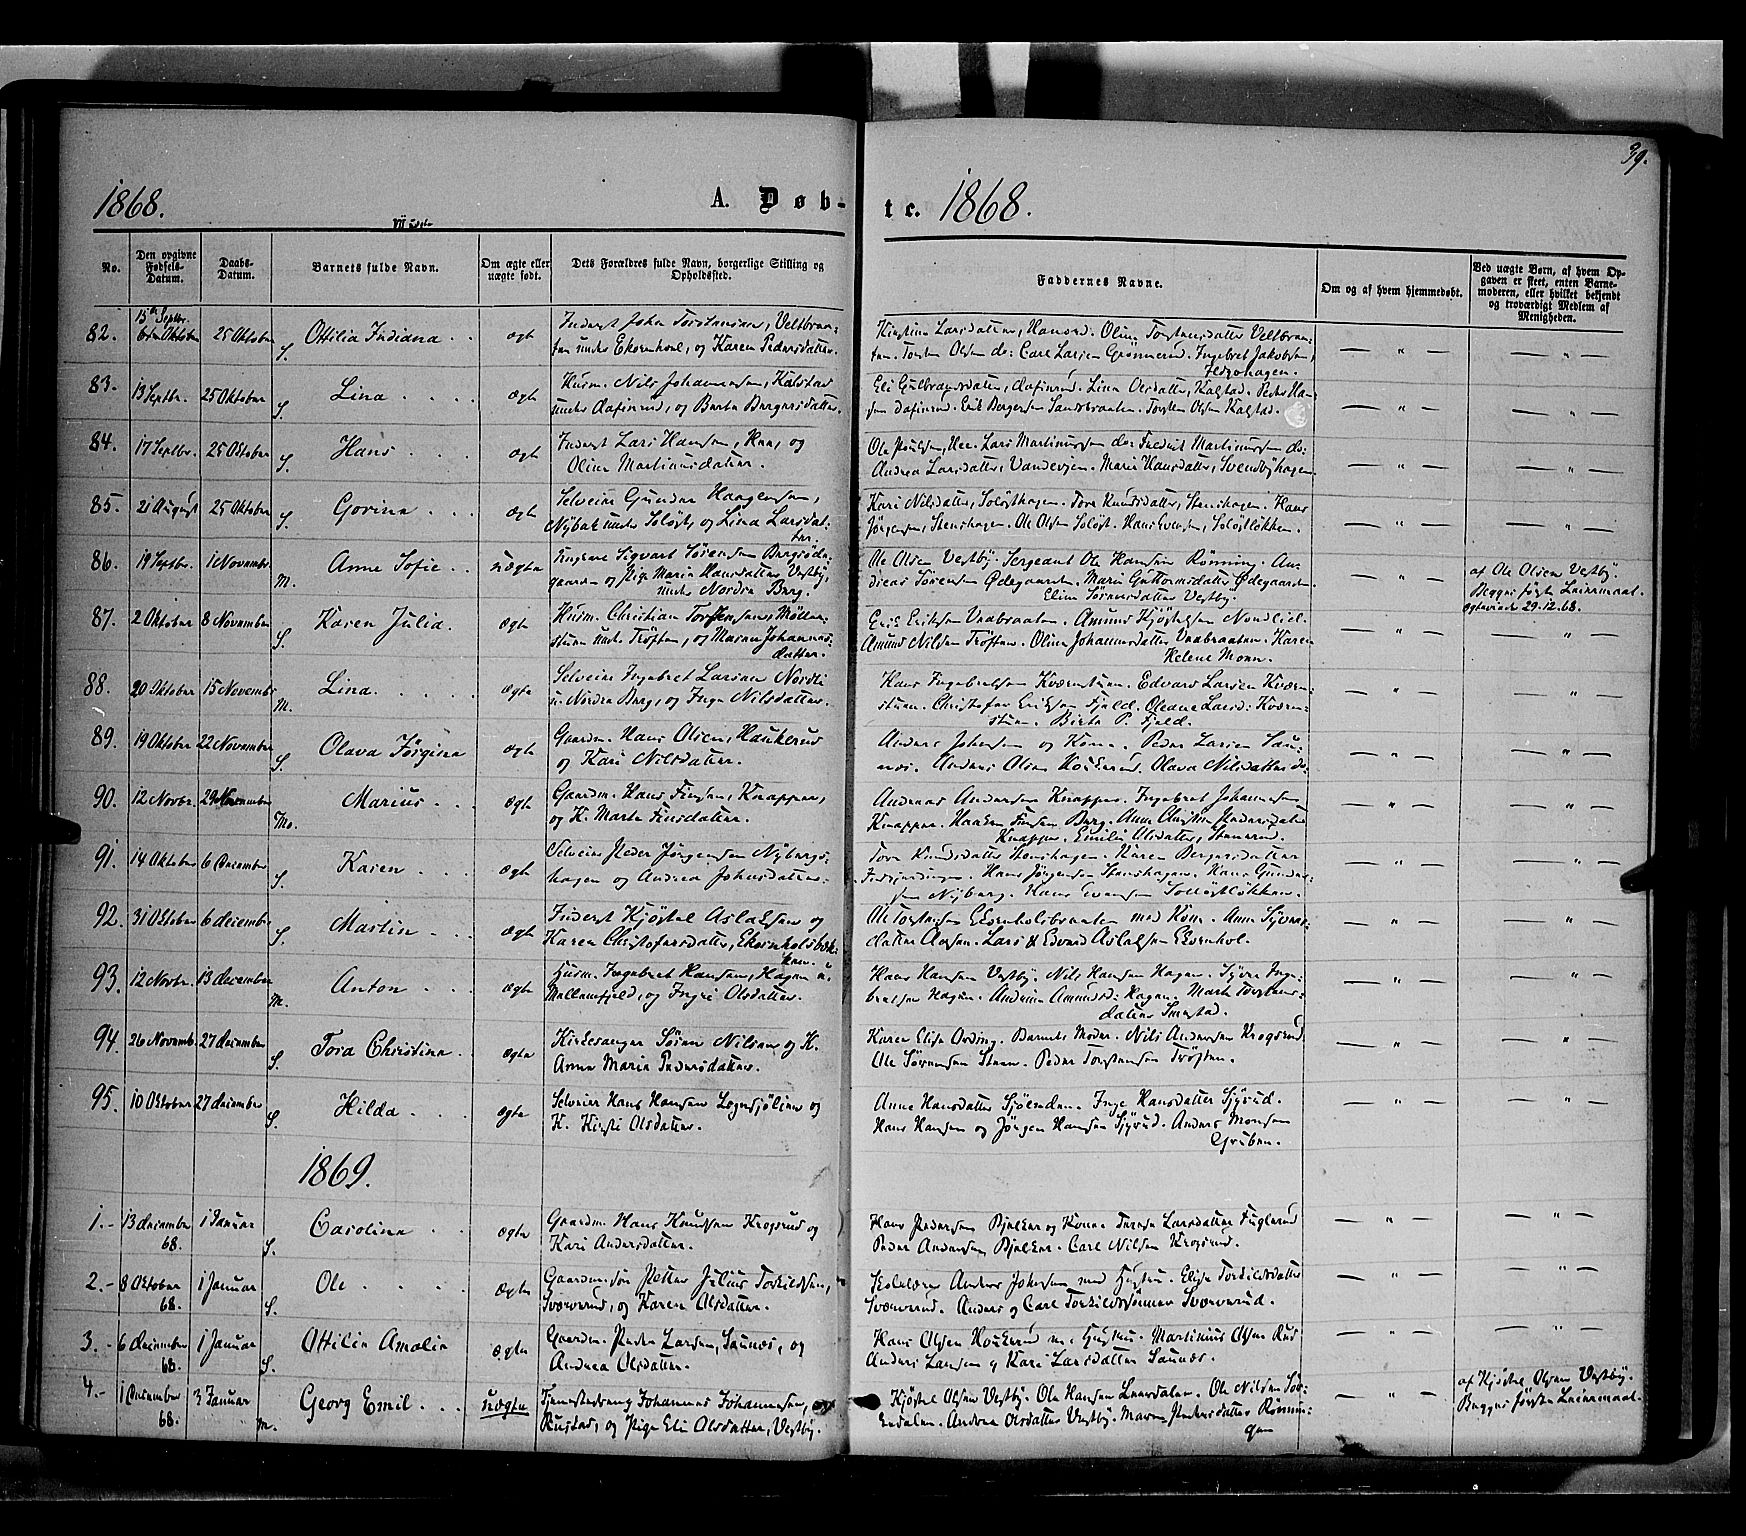 39.
1868. A. Døb- te. 1868.
No. Den opgivne Fødsels-Datum. Daabs-Datum. Barnets fulde Navn. Om ægte eller uægte født. Dets Forældres fulde Navn, borgerlige Stilling og Opholdssted. Faddernes Navne. Om og af hvem hjemmedøbt. Ved uægte Børn, af hvem Opgaven er skeet, enten Barnemoderen, eller hvilket bekjendt og troværdigt Medlem af Menigheden.
82. 15de Septbr. 25 Oktober S. Ottilia Indiana ægte Inderst Johan Torstensen, og Karen Pedersdatter.
Kirstine Larsdatter, Olsen do: Carl Larsen Grønnerud. Ingebret Jakobsen,
83. 13 Septbr. 25 Oktober S. Lina ægte Husm. Nils Johannesen, Kalstad
under og Berte Bergersdatter.
Eli Gulbrandsdatter, Lina Olsdatter, Kalstad. Peder Han-
sen Erik Bergersen Sandbraaten. Torsten Olsen Kalstad.
84. 17 Septbr. 25 Oktober S. Hans ægte Inderst Lars Hansen, og
Oline Martinusdatter.
Ole Lars Martinussen do: Fredrik Martinussen do:
Andrea Larsdatter, Marie Hansdatter, Svendbyhagen
85. 21 August 25 Oktober S. Gorina ægte Selveier Gunder Haagensen,
Nybak under Soløst, og Lina Larsdat-
ter.
Kari Nilsdatter, Soløsthagen. Tora Knudsdatter, Stenshagen. Hans
Jørgensen, Stenshagen. Ole Olsen Soløst. Hans Evensen, Soløstløkken.
86. 19 Septbr. 1 Novembr. M. Anne Sofie uægte Ungkarl Sigvart Sørensen
og Pige Maria Hansdatter Vestby,
under Nordre Berg.
Ole Olsen Vestby. Sergeant Ole Hansen Rønning. An-
dreas Sørensen Ødegaarden. Mari Guttormsdatter Ødegaarden
Vestby.
af Ole Olsen Vestby.
Begges første Leiermaal.
29.12.68.
87. 2 Oktober 8 November S. Karen Julia. ægte Husm. Christian Torstensen
under Trøften, og Maren Johannes-
datter.
Erik Eriksen Vaabraaten. Amund Kjøstelsen Nordlie.
Amund Nilsen Trøften. Oline Johannesdatter Vaabraaten. Karen
Helene Moen.
88. 20 Oktober 15 Novembr M. Lina. ægte Selveier Ingebret Larsen Nordli
u. Nordre Berg, og Inger Nilsdatter.
Hans Ingebretsen Kværnstuen. Edvard Larsen Kværn-
stuen. Christofer Eriksen Fjeld. Oleane Larsd: Kværn-
stuen. Birte P. Fjeld.
89. 19 Oktober 22 November S. Olava Jørgine ægte Gaardm. Hans Olsen, Haukerud
og Kari Nilsdatter.
Anders Johansen og Kone. Peder Larsen Sau-
nes. Anders Olsen Haukerud. Olava Nilsdatter do.
90. 12 Novbr. 29 November Mo. Marius ægte Gaardm. Hans Finsen, Knapper,
og K. Marte Finsdatter.
Andreas Andersen Knapper. Ingebret Johannesen
Knapper. Haaken Finsen Berg. Anne Pedersdatter
Knapper. Emilie Olsdatter,
91. 14 Oktober 6 December S. Karen ægte Selveier Peder Jørgensen Nybergs-
hagen og Andrea Johnsdatter.
Tore Knudsdatter Stenshagen. Karen Bergersdatter
Hans Jørgensen Stenshagen. Hans Gunder-
sen Nyberg. Hans Evensen Soløstløkken.
92. 31 Oktober 6 decembr S. Martin ægte Inderst Kjøstel Aslaksen og
Karen Christofersdatter,
Ole Torstensen med Kone. Anne
Lars & Edvard Aslaksen Ekornhol.
93. 12 Novbr. 13 december M. Anton ægte Husm. Ingebret Hansen, Hagen u.
Mellemfjeld, og Ingri Olsdatter.
Hans Hansen Vestby. Nils Hansen Hagen. Syver Inge-
bretsen Hagen. Amundsd: Hagen. Marte Torstens-
datter Smestad.
94. 26 Novemb. 27 december S. Tora Christine ægte Kirkesanger Søren Nilsen og K.
Anne Maria Pedersdatter.
Karen Elise Barnets Moder. Nils Andersen Krogsrud
Ole Sørensen Steen. Peder Torstensen Trøften.
95. 10 Oktober 27 december S. Hilda ægte Selveier Hans Hansen og
K. Kirsti Olsdatter.
Anne Hansdatter Sjøenden. Inge Hansdatter Sjyrud.
Hans Hansen og Jørgen Hansen Sjyrud. Anders Monsen
Gruben.
1869.
1. 13 december 68. 1 Januar S. Caroline ægte Gaardm. Hans Knudsen Krogsrud og
Kari Andersdatter.
Hans Pedersen Bjelker og Kone Larsdatter Fuglerud
Peder Andersen Bjelker. Carl Nilsen Krogsrud.
2. 8 Oktober 68. 1 Januar S. Ole ægte Gaardmandsøn Petter Julius Torkildsen,
Sværverud, og Karen Olsdatter.
Skolelærer Anders Johansen med Hustru. Elise Torkildsdatter
Sværverud. Anders og Carl Torkildssønner Sværverud.
3. 6 december 68. 1 Januar S. Ottilie Amalie ægte Gaardm. Peder Larsen, Saunes, og
Andrea Olsdatter.
Hans Olsen Haukerud m. Hustru. Martinius Olsen Rud
Anders Larsen og Kari Larsdatter Saunes.
4. 1 December 68. 3 Januar M. Georg Emil uægte Tjenestedreng Johannes Johannesen,
Rustad, og Pige Eli Olsdatter, Vestby.
Kjøstel Olsen Vestby. Ole Hansen Ole Nilsen
Andrea Olsdatter Vestby. Maren Pedersdatter Rønnin-
gen
af Kjøstel Olsen Vestby.
Begges første Leiermaal.